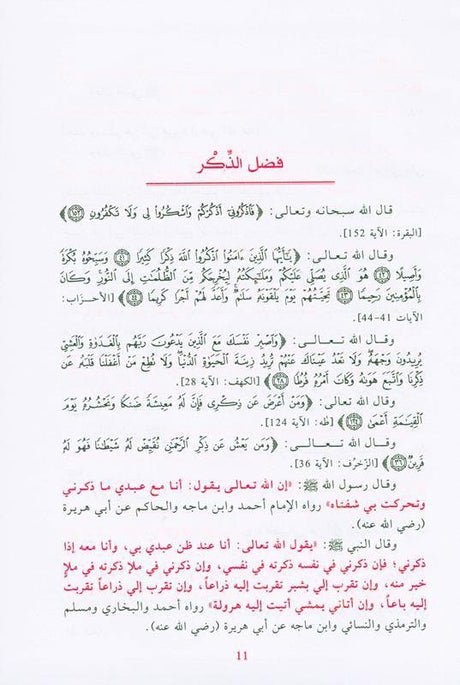 فضل الذِّكْر
قال الله سبحانه وتعالى: ﴿فَاذْكُرُونِي أَذْكُرْكُمْ وَاشْكُرُوا لِي وَلَا تَكْفُرُونِ ﴿١٥٢﴾﴾
[البقرة: الآية 152].
وقال الله تعالى: ﴿يَٰٓأَيُّهَا الَّذِينَ ءَامَنُوا اذْكُرُوا اللَّهَ ذِكْرًا كَثِيرًا ﴿٤١﴾ وَسَبِّحُوهُ بُكْرَةً
وَأَصِيلًا ﴿٤٢﴾ هُوَ الَّذِي يُصَلِّي عَلَيْكُمْ وَمَلَٰٓئِكَتُهُ لِيُخْرِجَكُم مِّنَ الظُّلُمَٰتِ إِلَى النُّورِ وَكَانَ
بِالْمُؤْمِنِينَ رَحِيمًا ﴿٤٣﴾ تَحِيَّتُهُمْ يَوْمَ يَلْقَوْنَهُ سَلَٰمٌ وَأَعَدَّ لَهُمْ أَجْرًا كَرِيمًا ﴿٤٤﴾﴾ [الأحزاب:
الآيات 41-44].
وقال الله تعالى: ﴿وَاصْبِرْ نَفْسَكَ مَعَ الَّذِينَ يَدْعُونَ رَبَّهُم بِالْغَدَوٰةِ وَالْعَشِيِّ
يُرِيدُونَ وَجْهَهُ وَلَا تَعْدُ عَيْنَاكَ عَنْهُمْ تُرِيدُ زِينَةَ الْحَيَوٰةِ الدُّنْيَا وَلَا تُطِعْ مَنْ أَغْفَلْنَا قَلْبَهُ عَن
ذِكْرِنَا وَاتَّبَعَ هَوَىٰهُ وَكَانَ أَمْرُهُ فُرُطًا ﴿٢٨﴾﴾ [الكهف: الآية 28].
وقال الله تعالى: ﴿وَمَنْ أَعْرَضَ عَن ذِكْرِي فَإِنَّ لَهُ مَعِيشَةً ضَنكًا وَنَحْشُرُهُ يَوْمَ
الْقِيَٰمَةِ أَعْمَىٰ ﴿١٢٤﴾﴾ [طه: الآية 124].
وقال الله تعالى: ﴿وَمَن يَعْشُ عَن ذِكْرِ الرَّحْمَٰنِ نُقَيِّضْ لَهُ شَيْطَٰنًا فَهُوَ لَهُ
قَرِينٌ ﴿٣٦﴾﴾ [الزّخرُف: الآية 36].
وقال رسول الله ﷺ: «إن الله تعالى يقول: أنا مع عبدي ما ذكرني
وتحركت بي شفتاه» رواه الإمام أحمد وابن ماجه والحاكم عن أبي هريرة
(رضي الله عنه).
وقال النبي ﷺ: «يقول الله تعالى: أنا عند ظن عبدي بي، وأنا معه إذا
ذكرني؛ فإن ذكرني في نفسه ذكرته في نفسي، وإن ذكرني في ملأ ذكرته في ملإ
خير منه، وإن تقرب إلي بشبر تقربت إليه ذراعاً، وإن تقرب إلي ذراعاً تقربت
إليه باعاً، وإن أتاني يمشي أتيت إليه هرولة» رواه أحمد والبخاري ومسلم
والترمذي والنسائي وابن ماجه عن أبي هريرة (رضي الله عنه).
11